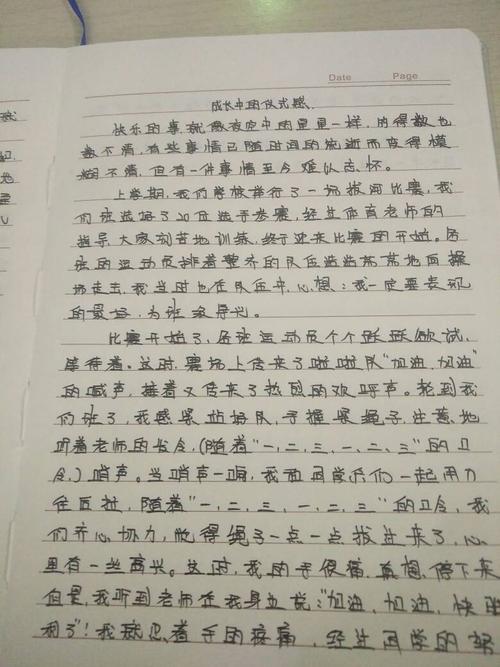 Date Page
成长中的仪式感.
快乐的事就像夜空中的星星一样,的得数也
数不清,有些事情已随时间的流逝而变得模
糊不清,但有一件事情至今难以忘怀。
上学期,我们学校举行了一场拔河比赛,我
们班选好了20位选手参赛,经过体育老师的
指导,大家刻苦地训练,终于迎来比赛的开始。各
班的运动员排着整齐的队伍浩浩荡荡地向操
场走去,我当时也在队伍中,心想:我一定要表现
的最好,为班级争光。
比赛开始了,各班运动员个个跃跃欲试,
等待着。这时,赛场上传来了啦啦队"加油,加油"
的喊声,接着又传来了热烈的欢呼声。轮到我
们班了,我感紧站好队,手握紧绳子,注意地
听着老师的发令,(随着"一,二,三,一,二,三"的口
令,)哨声。当哨声一响,我和同学们一起用力
往后拉,随着"一,二,三,一,二,三"的口令,我
们齐心协力,觉得绳子一点一点拔过来了,心
里有一丝高兴。这时,我的手很痛,真想停下来
但是,我听到老师在我身边说:"加油,加油,快胜
利了"!我就忍着手的疼痛,经过同学的努